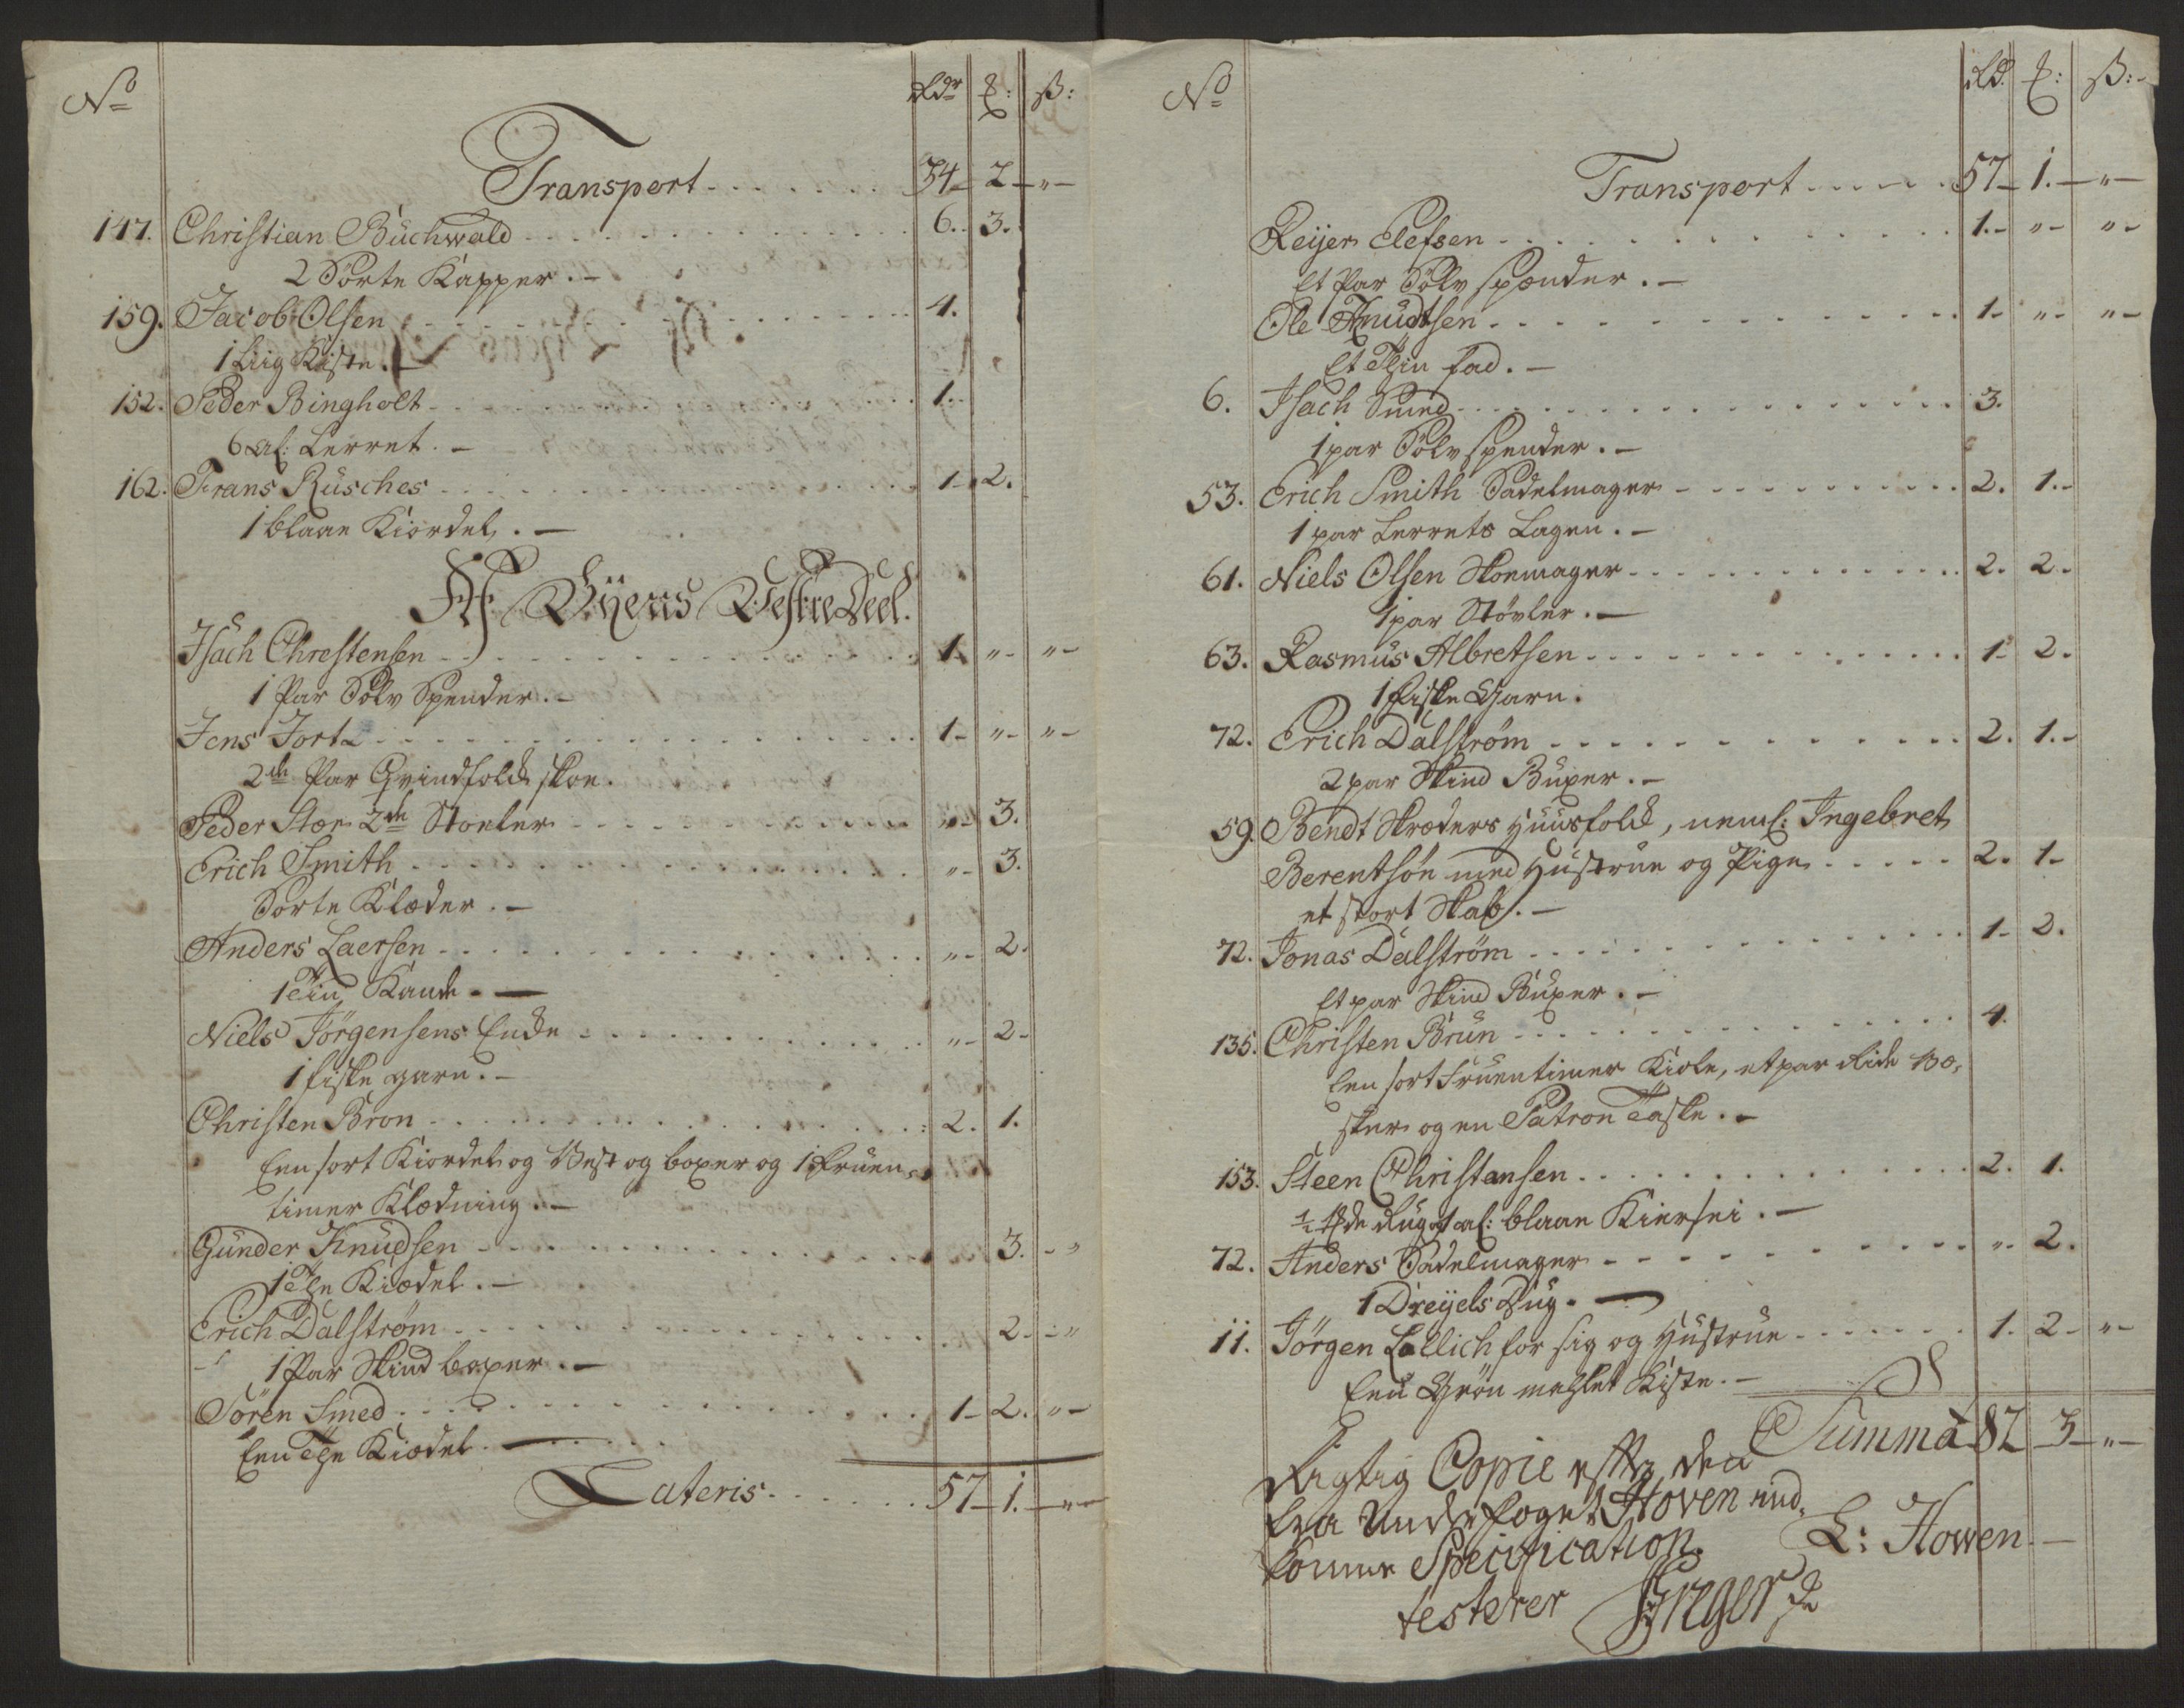 No Rdr ℔: ß:
Transport 34 2 "
147. Christian Büchwald 6. 3.
2 Sorte Kapper.
159. Jacob Olsen 4.
1 Liig Kiste.
152. Peder Bingholt 1.
6 al: Lerret.
162. Frans Rüsches 1 2.
1 blaae Kiordel.
Af Byens Vestre Deel.
Isach Chrestensen 1 " "
1 Par Sölv Spender.
Jens Jort 1 " "
2de Par Qvindfolk skoe.
Peder Stor 2de Stoeler " 3.
Erich Smith " 3.
Sorte Klæder.
Anders Laersen " 2.
1 Tin Kande.
Niels Jörgensens Enke " 2
1 fiske garn.
Christen Bron 2. 1.
Een sort Kiordel og Vest og boxer og 1 fruen-
timer Klædning.
Günder Knudsen 3. "
1 The Kiædel.
Erich Dalström 2 "
1 Par Skind boxer.
Sören Smed 1 2. "
Een The Kiædel
Lateris 57 1. "
No Rd. ℔: ß:
Transport 57 1. "
Reijer Elefsen 1. " "
Et Par Sölv spænder.
Ole Knudtsen 1 " "
Et Thin fad.
6. Isach Smed 3.
1 par Sölv spender.
53. Erich Smith Sadelmager 2. 1.
1 par Lerrets Lagen.
61. Niels Olsen Skoemager 2. 2.
1 par Stövler.
63. Rasmüs Albretsen 1 2.
1 fiske Garn.
72. Erich Dalström 2. 1.
2 par Skind Büxer.
59. Bendt Skræders Huusfolk, neml: Ingebret
Berentsön med Hustrue og Pige 2. 1
et stort Skab.
72. Jonas Dalström 1 2.
Et par Skind Büxer.
135. Christen Brün 4.
Een sort Fruentimer Kiole, et par Ride Bö-
sker og en Patron Taske.
153. Steen Christensen 2. 1.
blaae Kiersei.
72. Anders Sadelmager " 2.
1 Dreyels Dug.
11. Jörgen Lallich for sig og Hustrue 1. 2 "
Een Grön mahlet Kiste.
Summa 82 3 "
Rigtig Copie efter den
fra Underfoget Hoven ind-
komne Specification. L: Howen
testerer